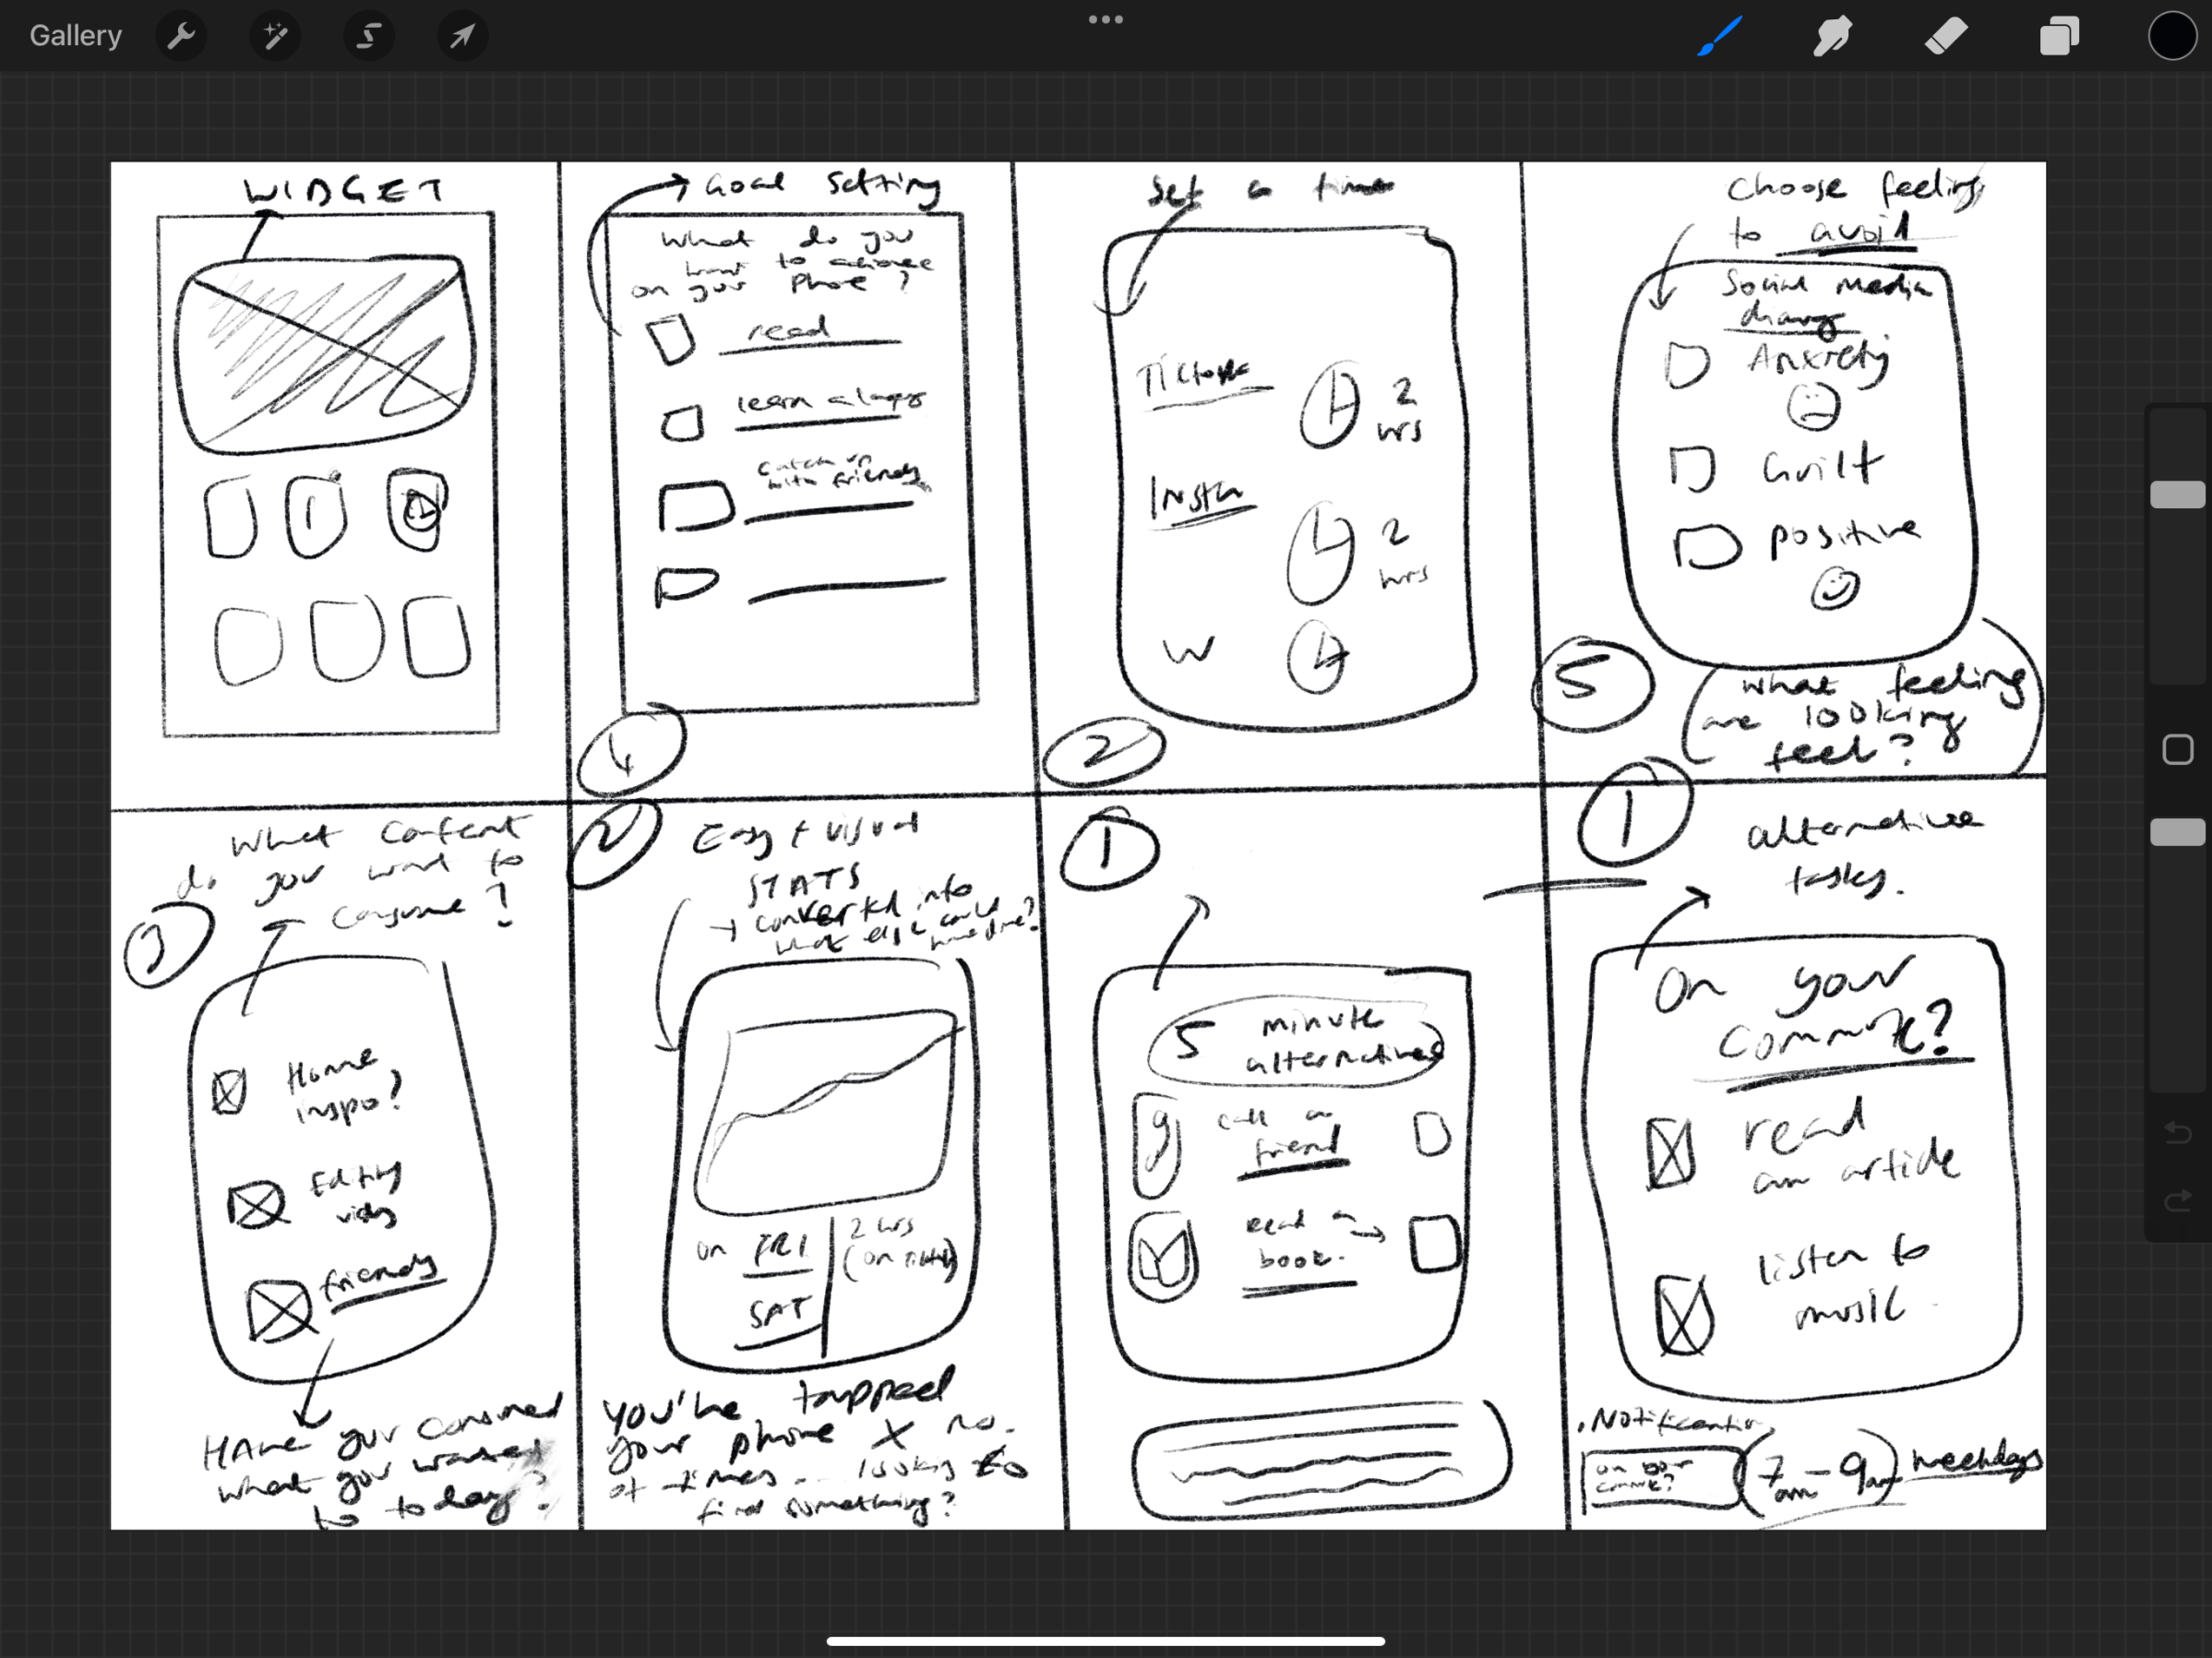 Gallery
WIDGET
Goal setting
What do you
want to achieve
on your phone?
read
learn a
catch up
with friends
4
Set a time
Tictok
2
hrs
Insta
2
hrs
W
2
Choose feeling
to avoid
Social Media
Anxiety
Guilt
positive
5
What feeling
are looking
feel?
What content
do you want to
consume?
3
Home
inspo?
Editing
vids
friends
Have you consumed
what you wanted
to today?
2
Easy + visual
STATS
→ converted into
what else could
have done?
on FRI
2 hrs
(on
SAT
You've tapped
your phone X no.
of times... looking to
find something?
1
5 minute
alternatives
call a
friend
read a
book.
1
alternative
tasks.
On your
commute?
read
an article
listen to
music
Notification
on your
commute?
(7am-9am) weekdays